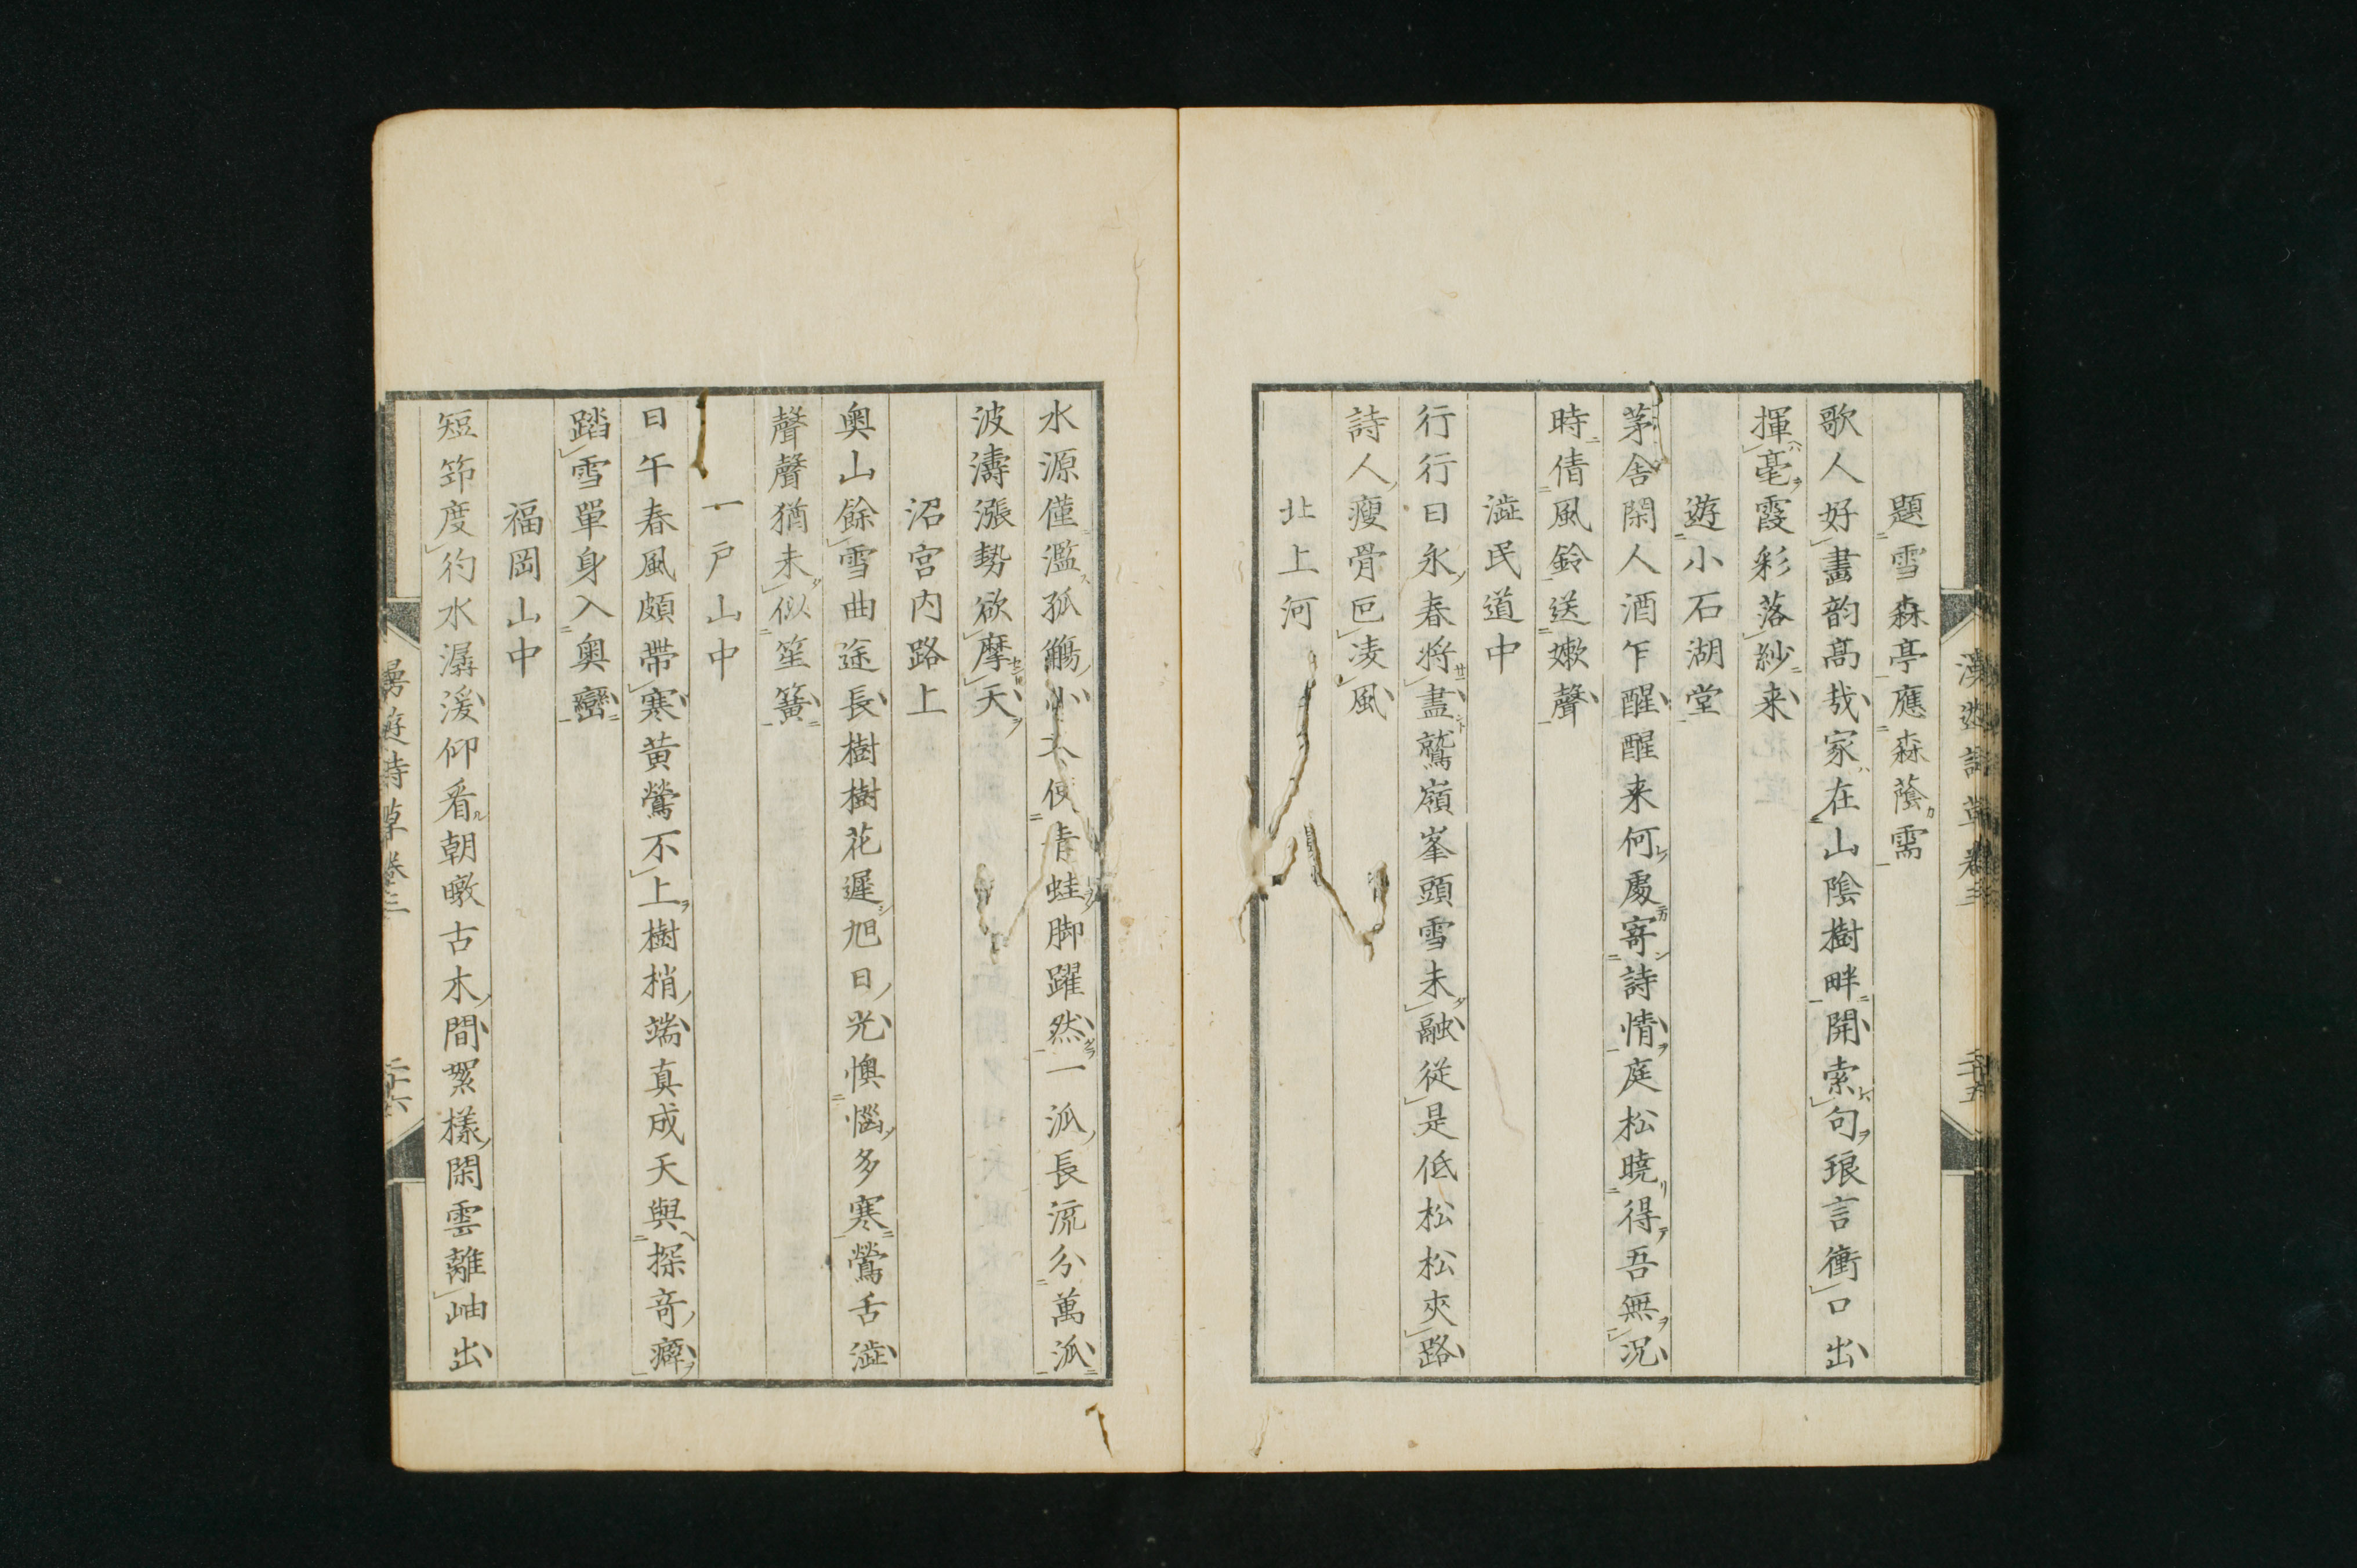 題雪森亭應森蔭需
歌人好畫韵髙哉家在山陰樹畔開索句琅言衝口出
揮毫霞彩落紗来
遊小石湖堂
茅舎閑人酒乍醒醒来何處寄詩情庭松暁得吾無況
時倩風鈴送嫰聲
澁民道中
行行日永春将盡鷲嶺峯頭雪未融従是低松松夾路
詩人瘦骨叵凌風
北上河
水源僅濫孤觴小不使青蛙脚躍然一派長流分萬派
波濤漲勢欲摩天
沼宮内路上
奥山餘雪曲途長樹樹花遲旭日光懊惱多寒鶯舌澁
聲聲猶未似笙簧
一戸山中
日午春風頗帶寒黄鶯不上樹梢端真成天與探竒癖
踏雪單身入奥巒
福岡山中
短笻度彴水潺湲仰看朝暾古木間累樣閑雲離岫出
漫遊詩草卷三
二十六